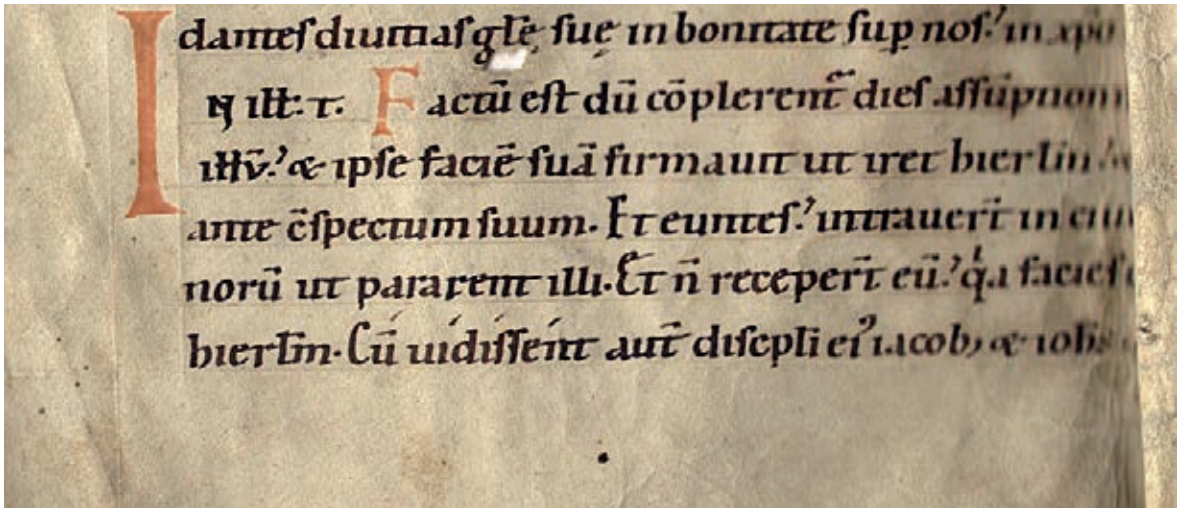 dantes diuitias glę suę in bonitate sup nos. in xpo
IN ill. t. Factū est dū cōplerent dies assūption
illiꝰ. & ipse faciē suā firmauit ut iret hierlm
ante c̄spectum suum. Et euntes. intrauer̄t in ciui
norū ut pararent illi. Et n̄ receper̄t eū. qͥa facies
hierlm. Cū uidissent aut̄ discpli eiꝰ iacob; & iohs